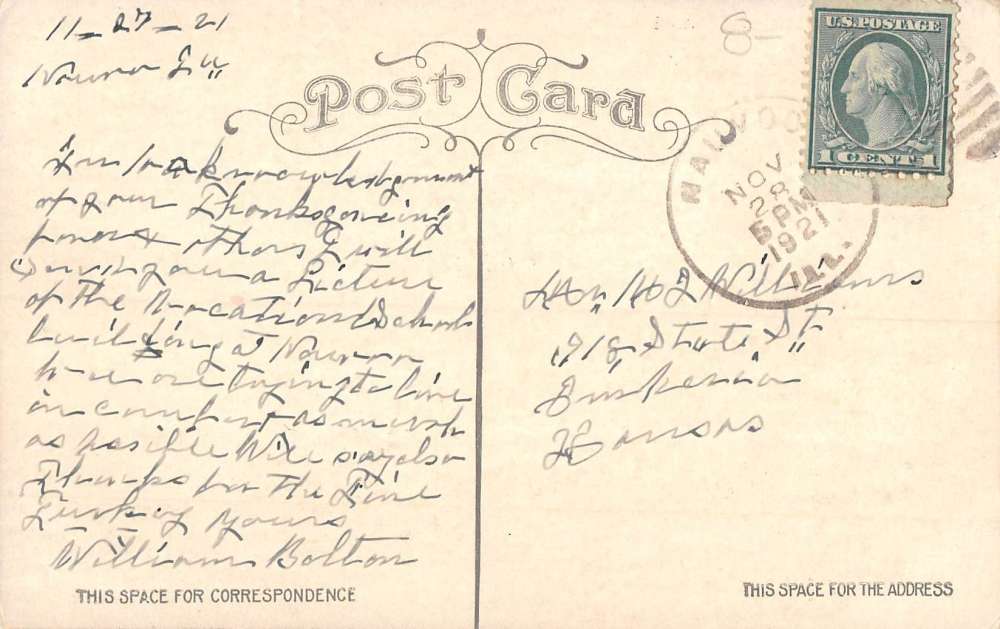 11-27-21
8-
U.S. POSTAGE
1 CENT 1
Post Card
NOV
28
5 PM
1921
ILL.
In
of your Thanksgiveing
favor & others I will
you a Picture
of the Vocational School
building at
we are trying to live
in comfort as much
as posible Will say also
Thanks for the Fine
Turkey Yours
William Bolton
THIS SPACE FOR CORRESPONDENCE
Williams
1918 State St
Kansas
THIS SPACE FOR THE ADDRESS